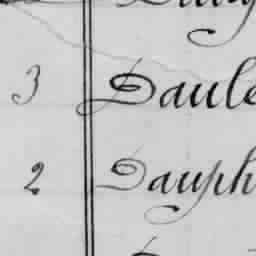 3 Daule
2 Dauph